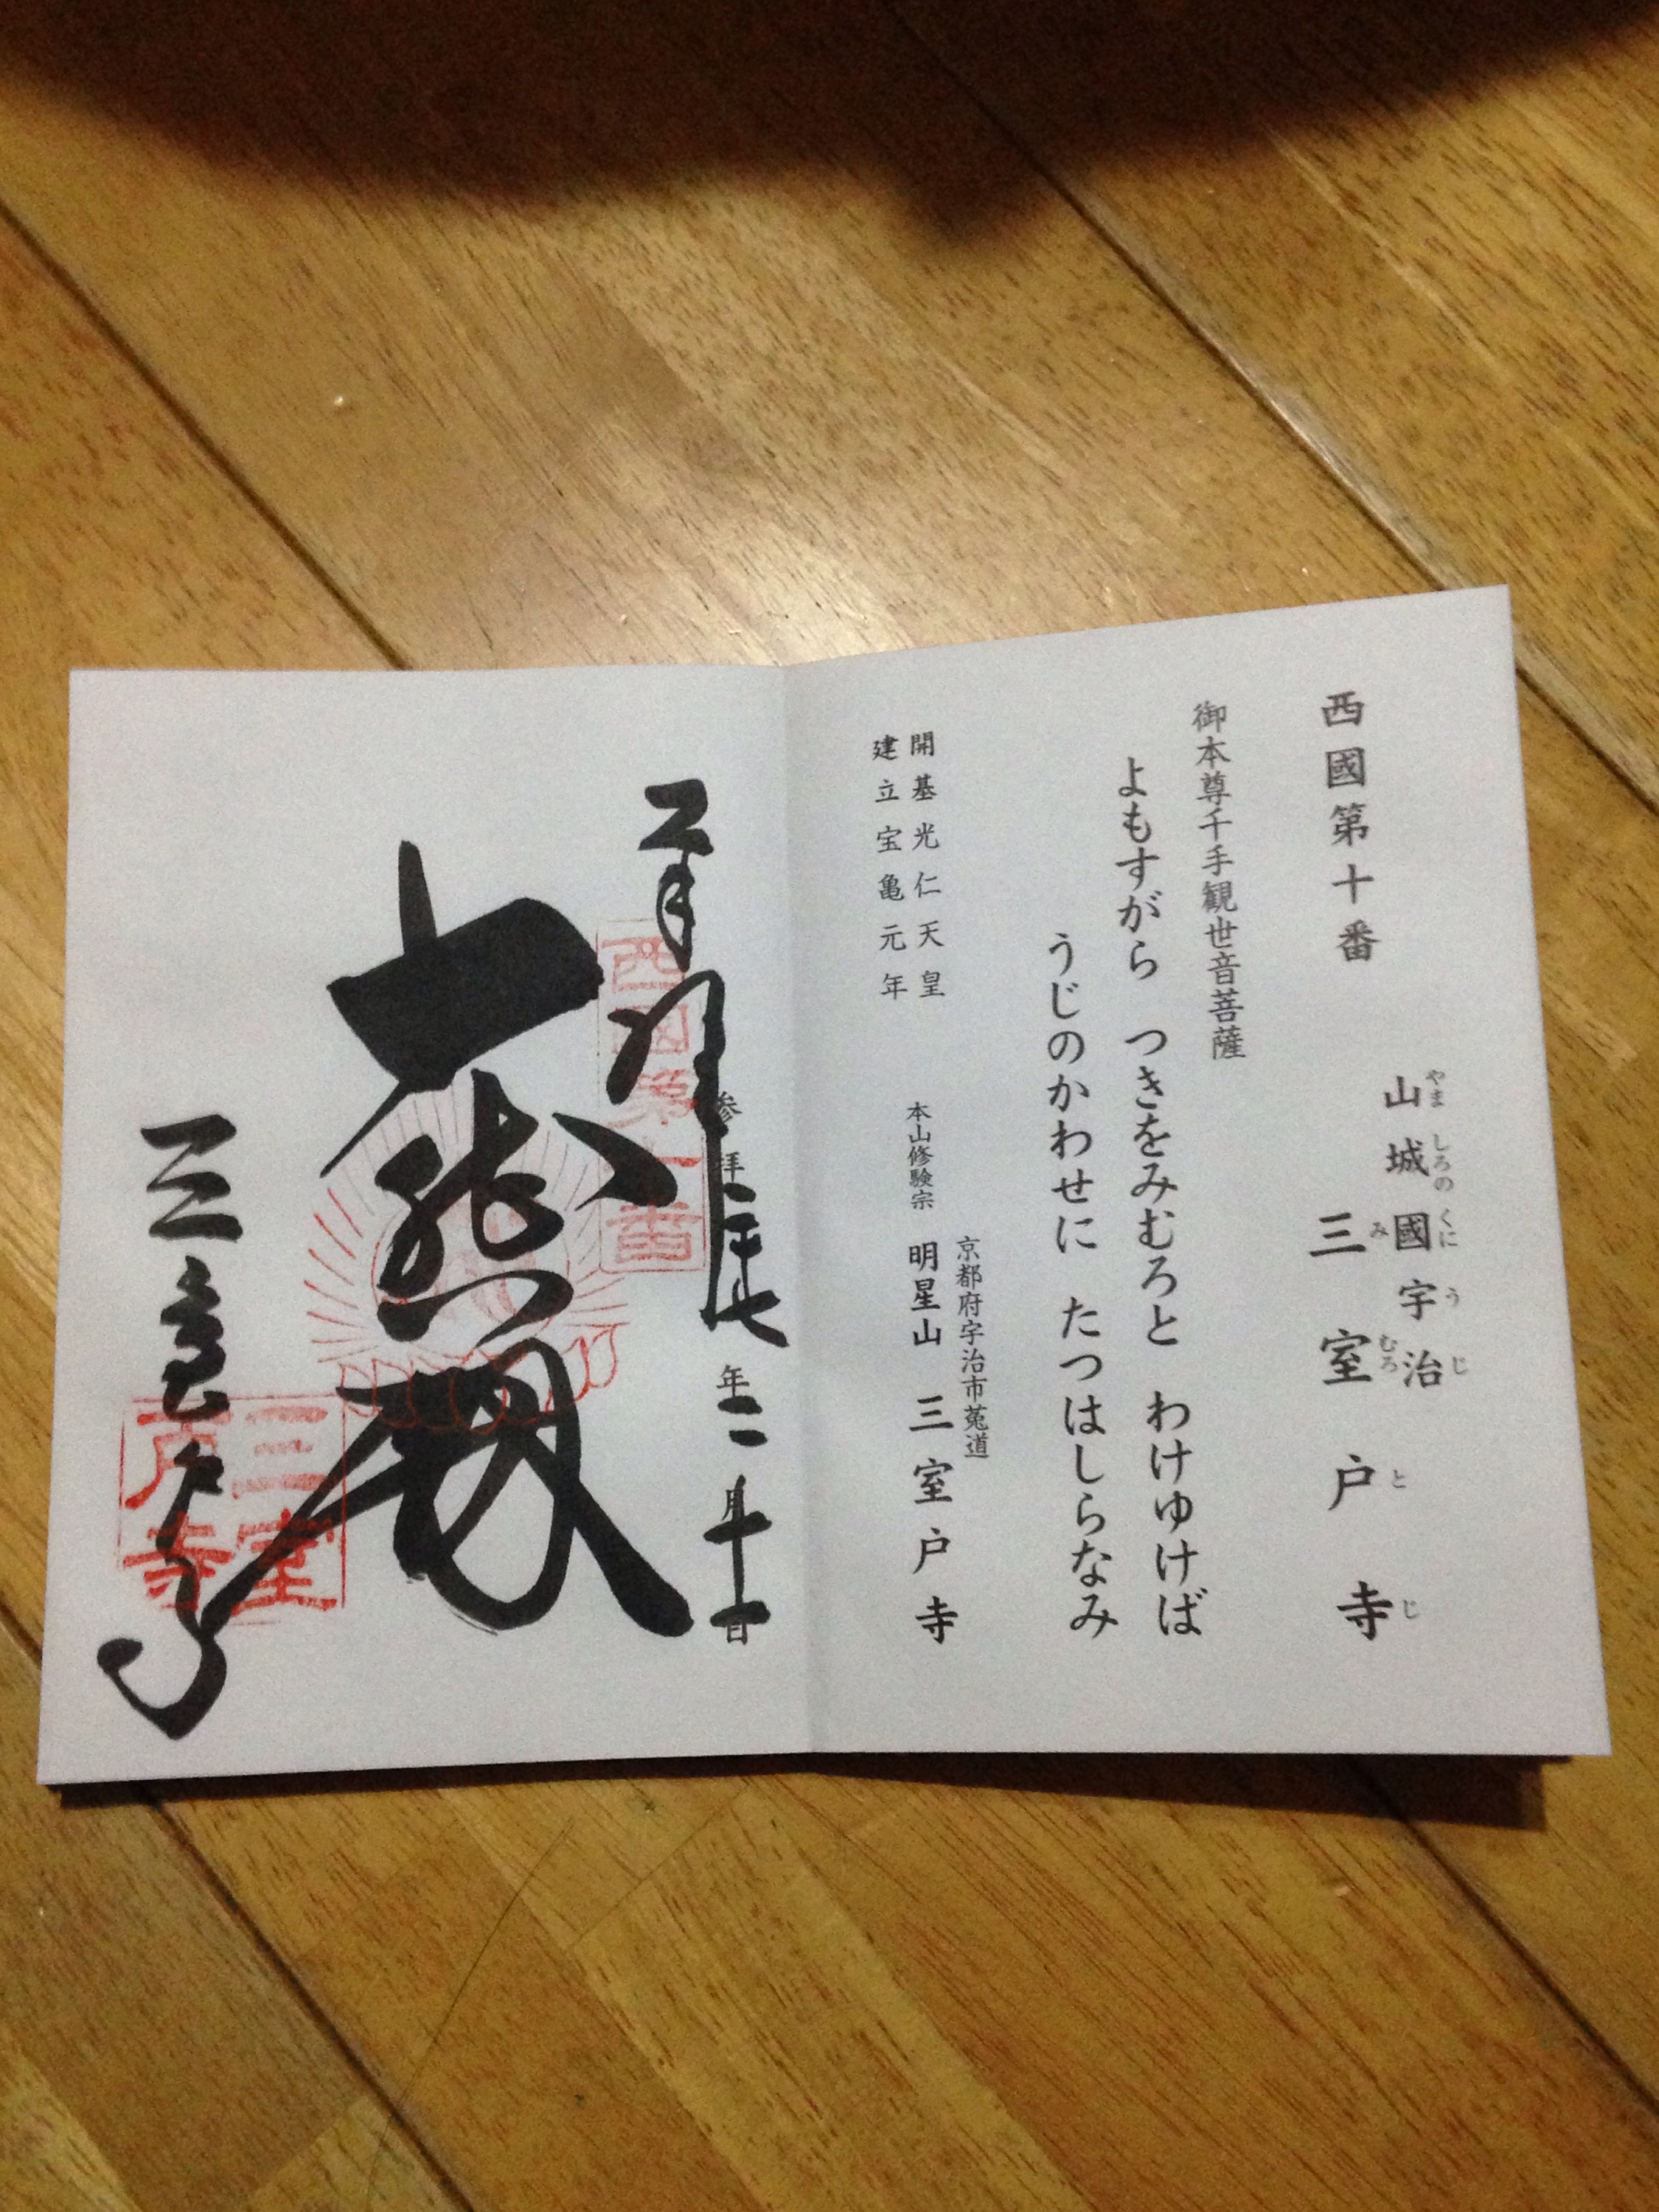 西國第十番
山城國宇治
やましろのくにうじ
三室戸寺
みむろとじ
御本尊千手観世音菩薩
よもすがら つきをみむろと わけゆけば
うじのかわせに たつはしらなみ
開基光仁天皇
建立宝亀元年
京都府宇治市菟道
本山修験宗 明星山 三室戸寺
参拝二十七年二月十一日
西國第十番
三室戸寺
三室戸寺